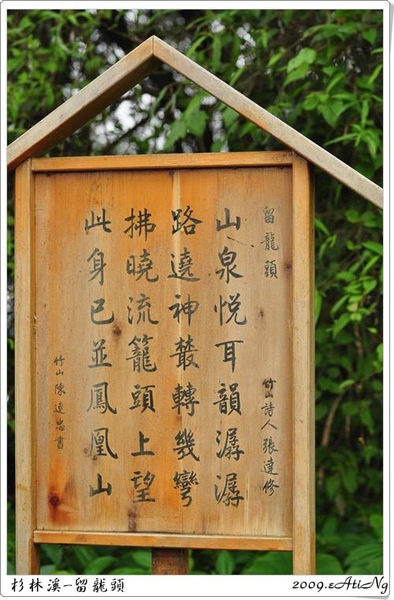 留龍頭 竹山詩人張達修
山泉悅耳韻潺潺
路遶神叢轉幾彎
拂曉流籠頭上望
此身已並鳳凰山
竹山陳達忠書
杉林溪-留龍頭
2009.eAtiNg